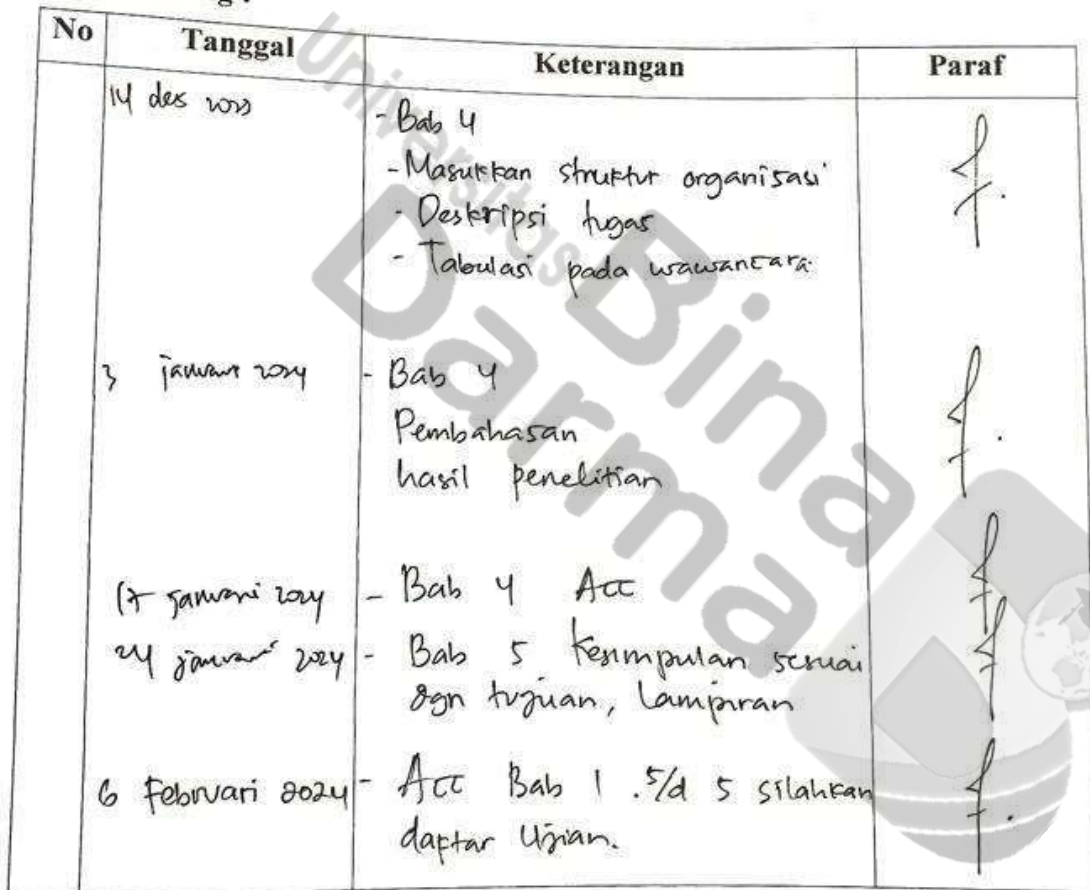 No Tanggal Keterangan Paraf
14 des 2023 - Bab 4
- Masukkan struktur organisasi
- Deskripsi tugas
- Tabulasi pada wawancara
3 januari 2024 - Bab 4
Pembahasan
hasil penelitian
17 januari 2024 - Bab 4 Acc
24 januari 2024 - Bab 5 Kesimpulan sesuai
dgn tujuan, Lampiran
6 Februari 2024 - Acc Bab 1 s/d 5 silahkan
daptar Ujian.
Universitas
Bina
Darma